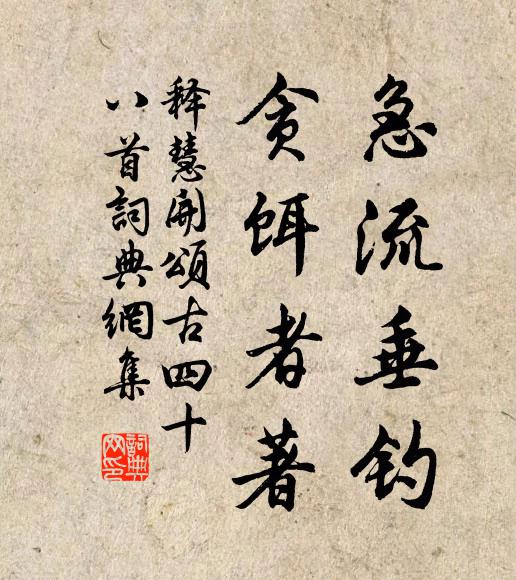 急流垂钓
贪饵者著
释慧開頌古四十
八首詞典網集
詞典網印